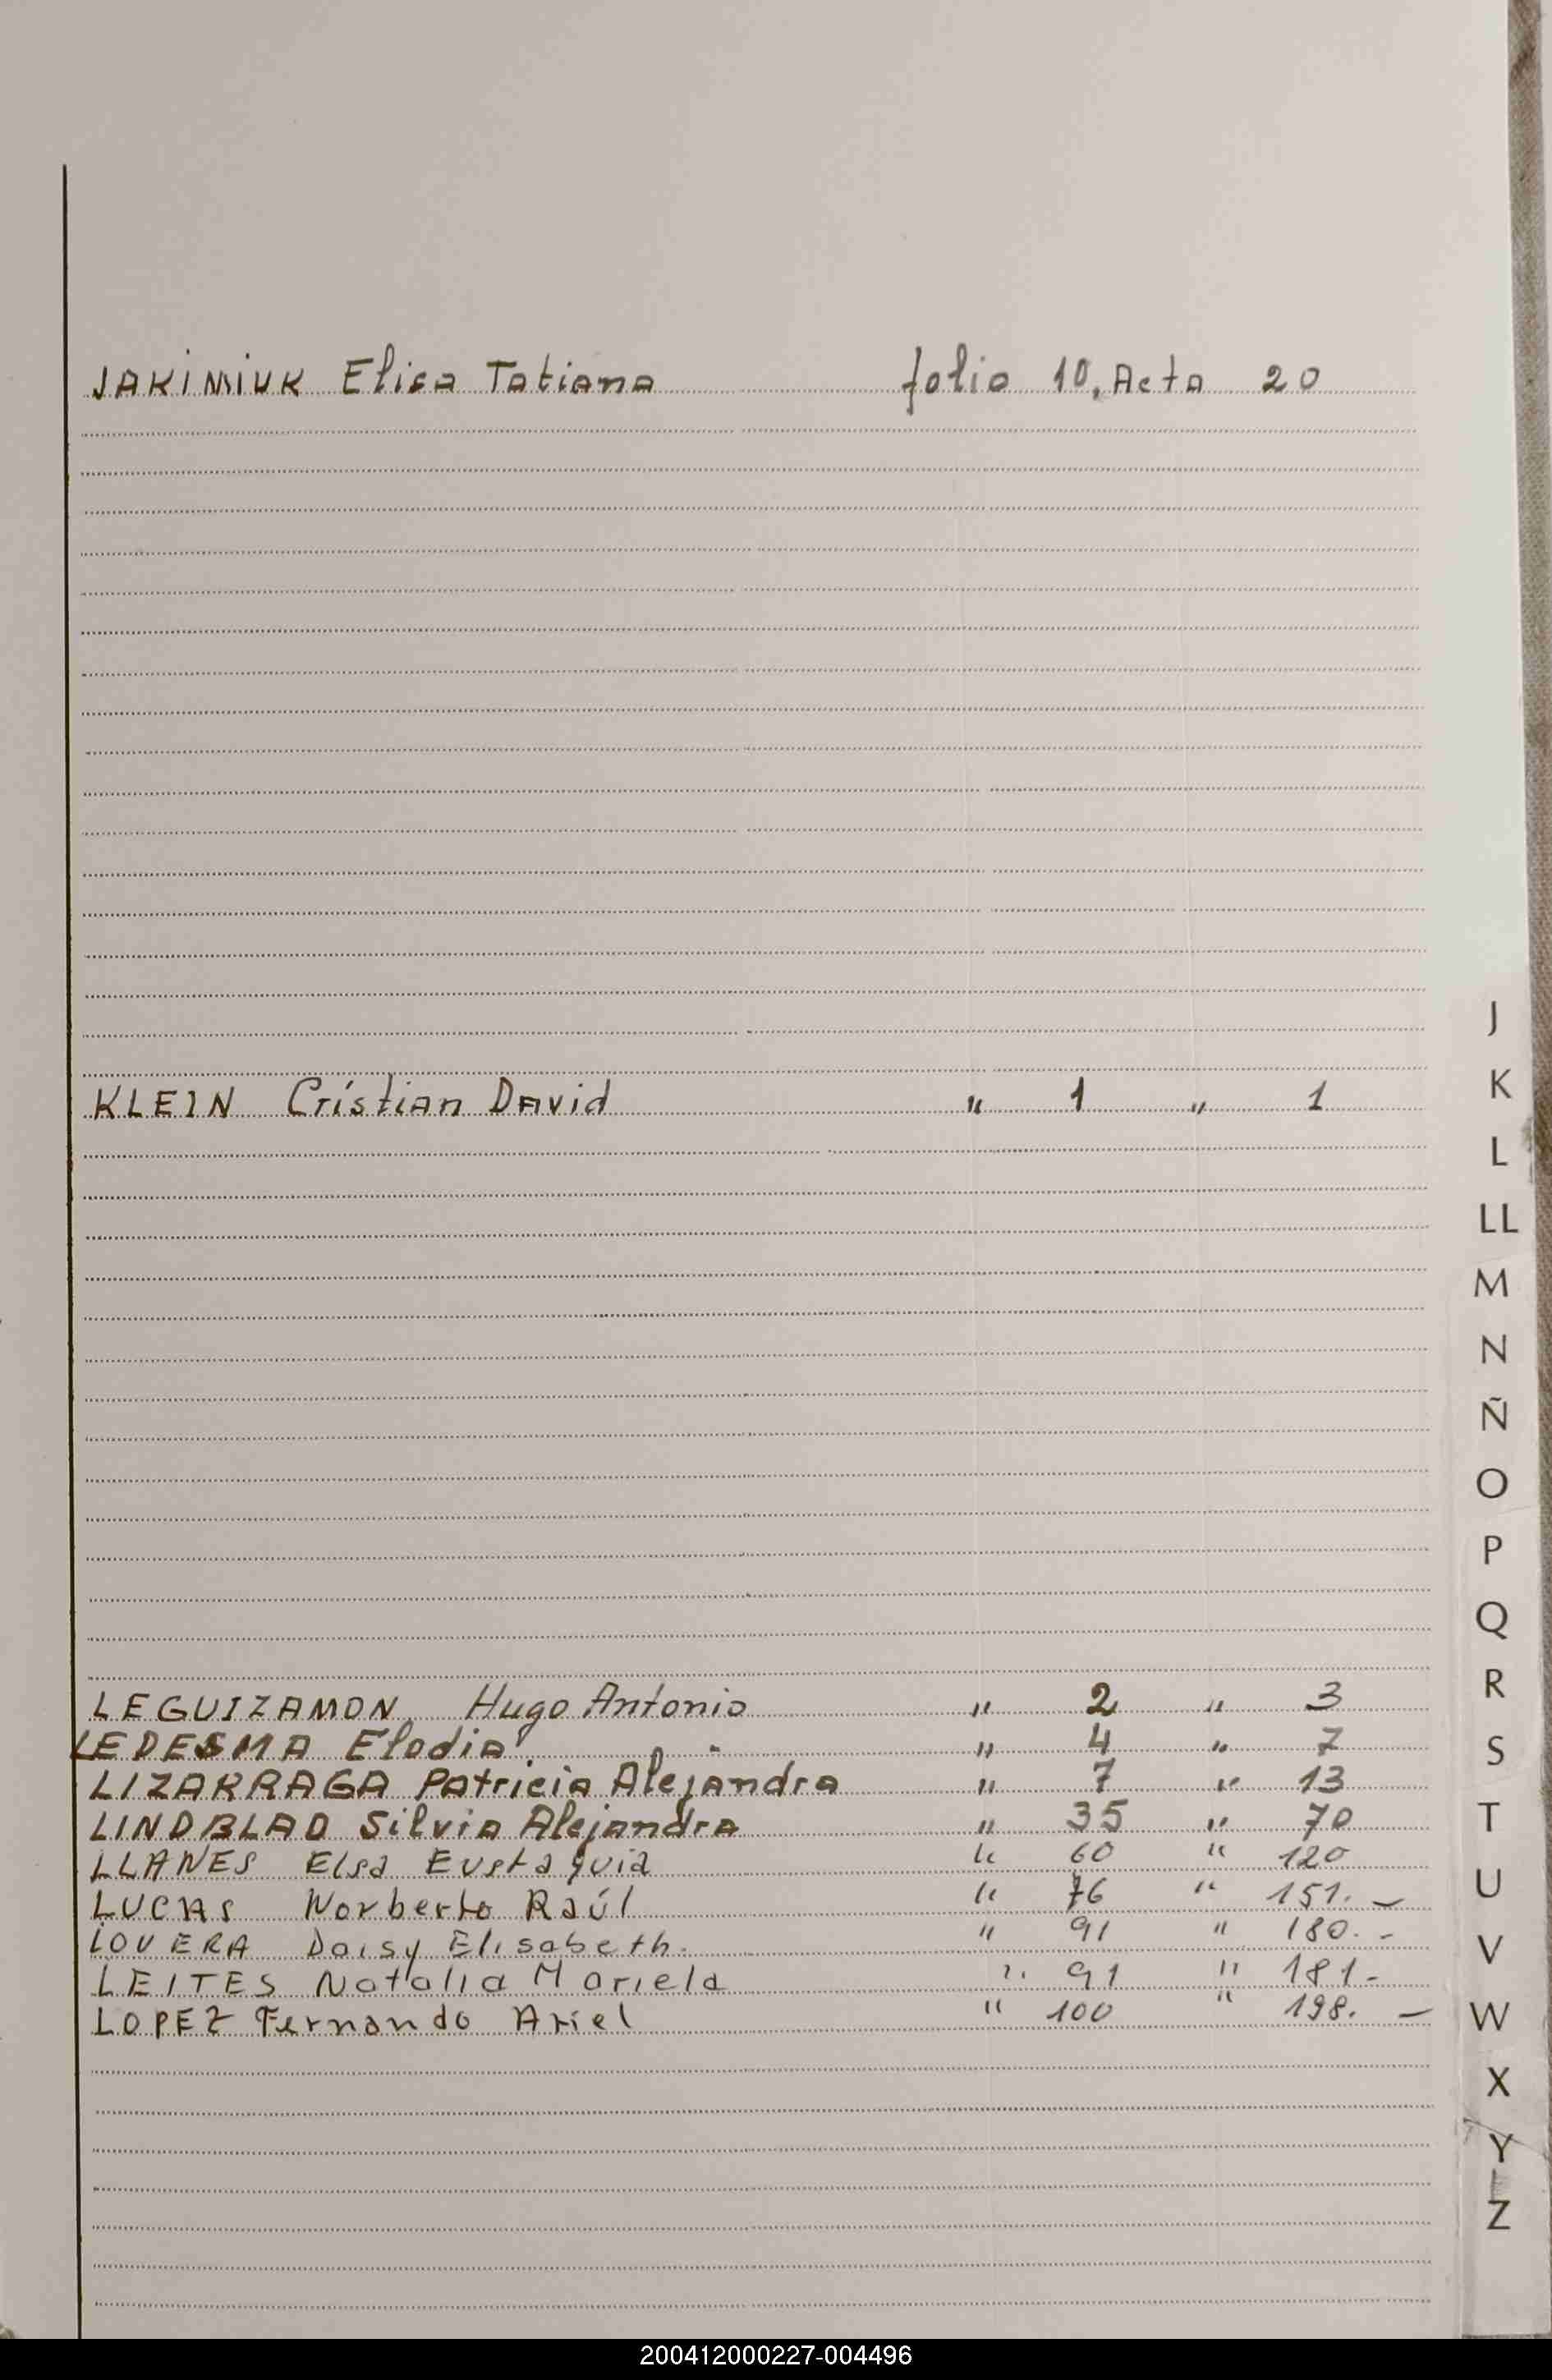 JAKIMIUK Elisa Tatiana folio 10, Acta 20
J
K
KLEIN Cristian David " 1 " 1
L
LL
M
N
Ñ
O
P
Q
R
LEGUIZAMON Hugo Antonio " 2 " 3
LEDESMA Elodia " 4 " 7
S
LIZARRAGA Patricia Alejandra " 7 " 13
LINDBLAD Silvia Alejandra " 35 " 70
T
LLANES Elsa Eustaquia " 60 " 120
U
LUCAS Norberto Raúl " 76 " 151. -
LOVERA Daisy Elisabeth. " 91 " 180. -
V
LEITES Natalia Mariela " 91 " 181-
LOPEZ Fernando Ariel " 100 " 198. -
W
X
Y
Z
200412000227-004496